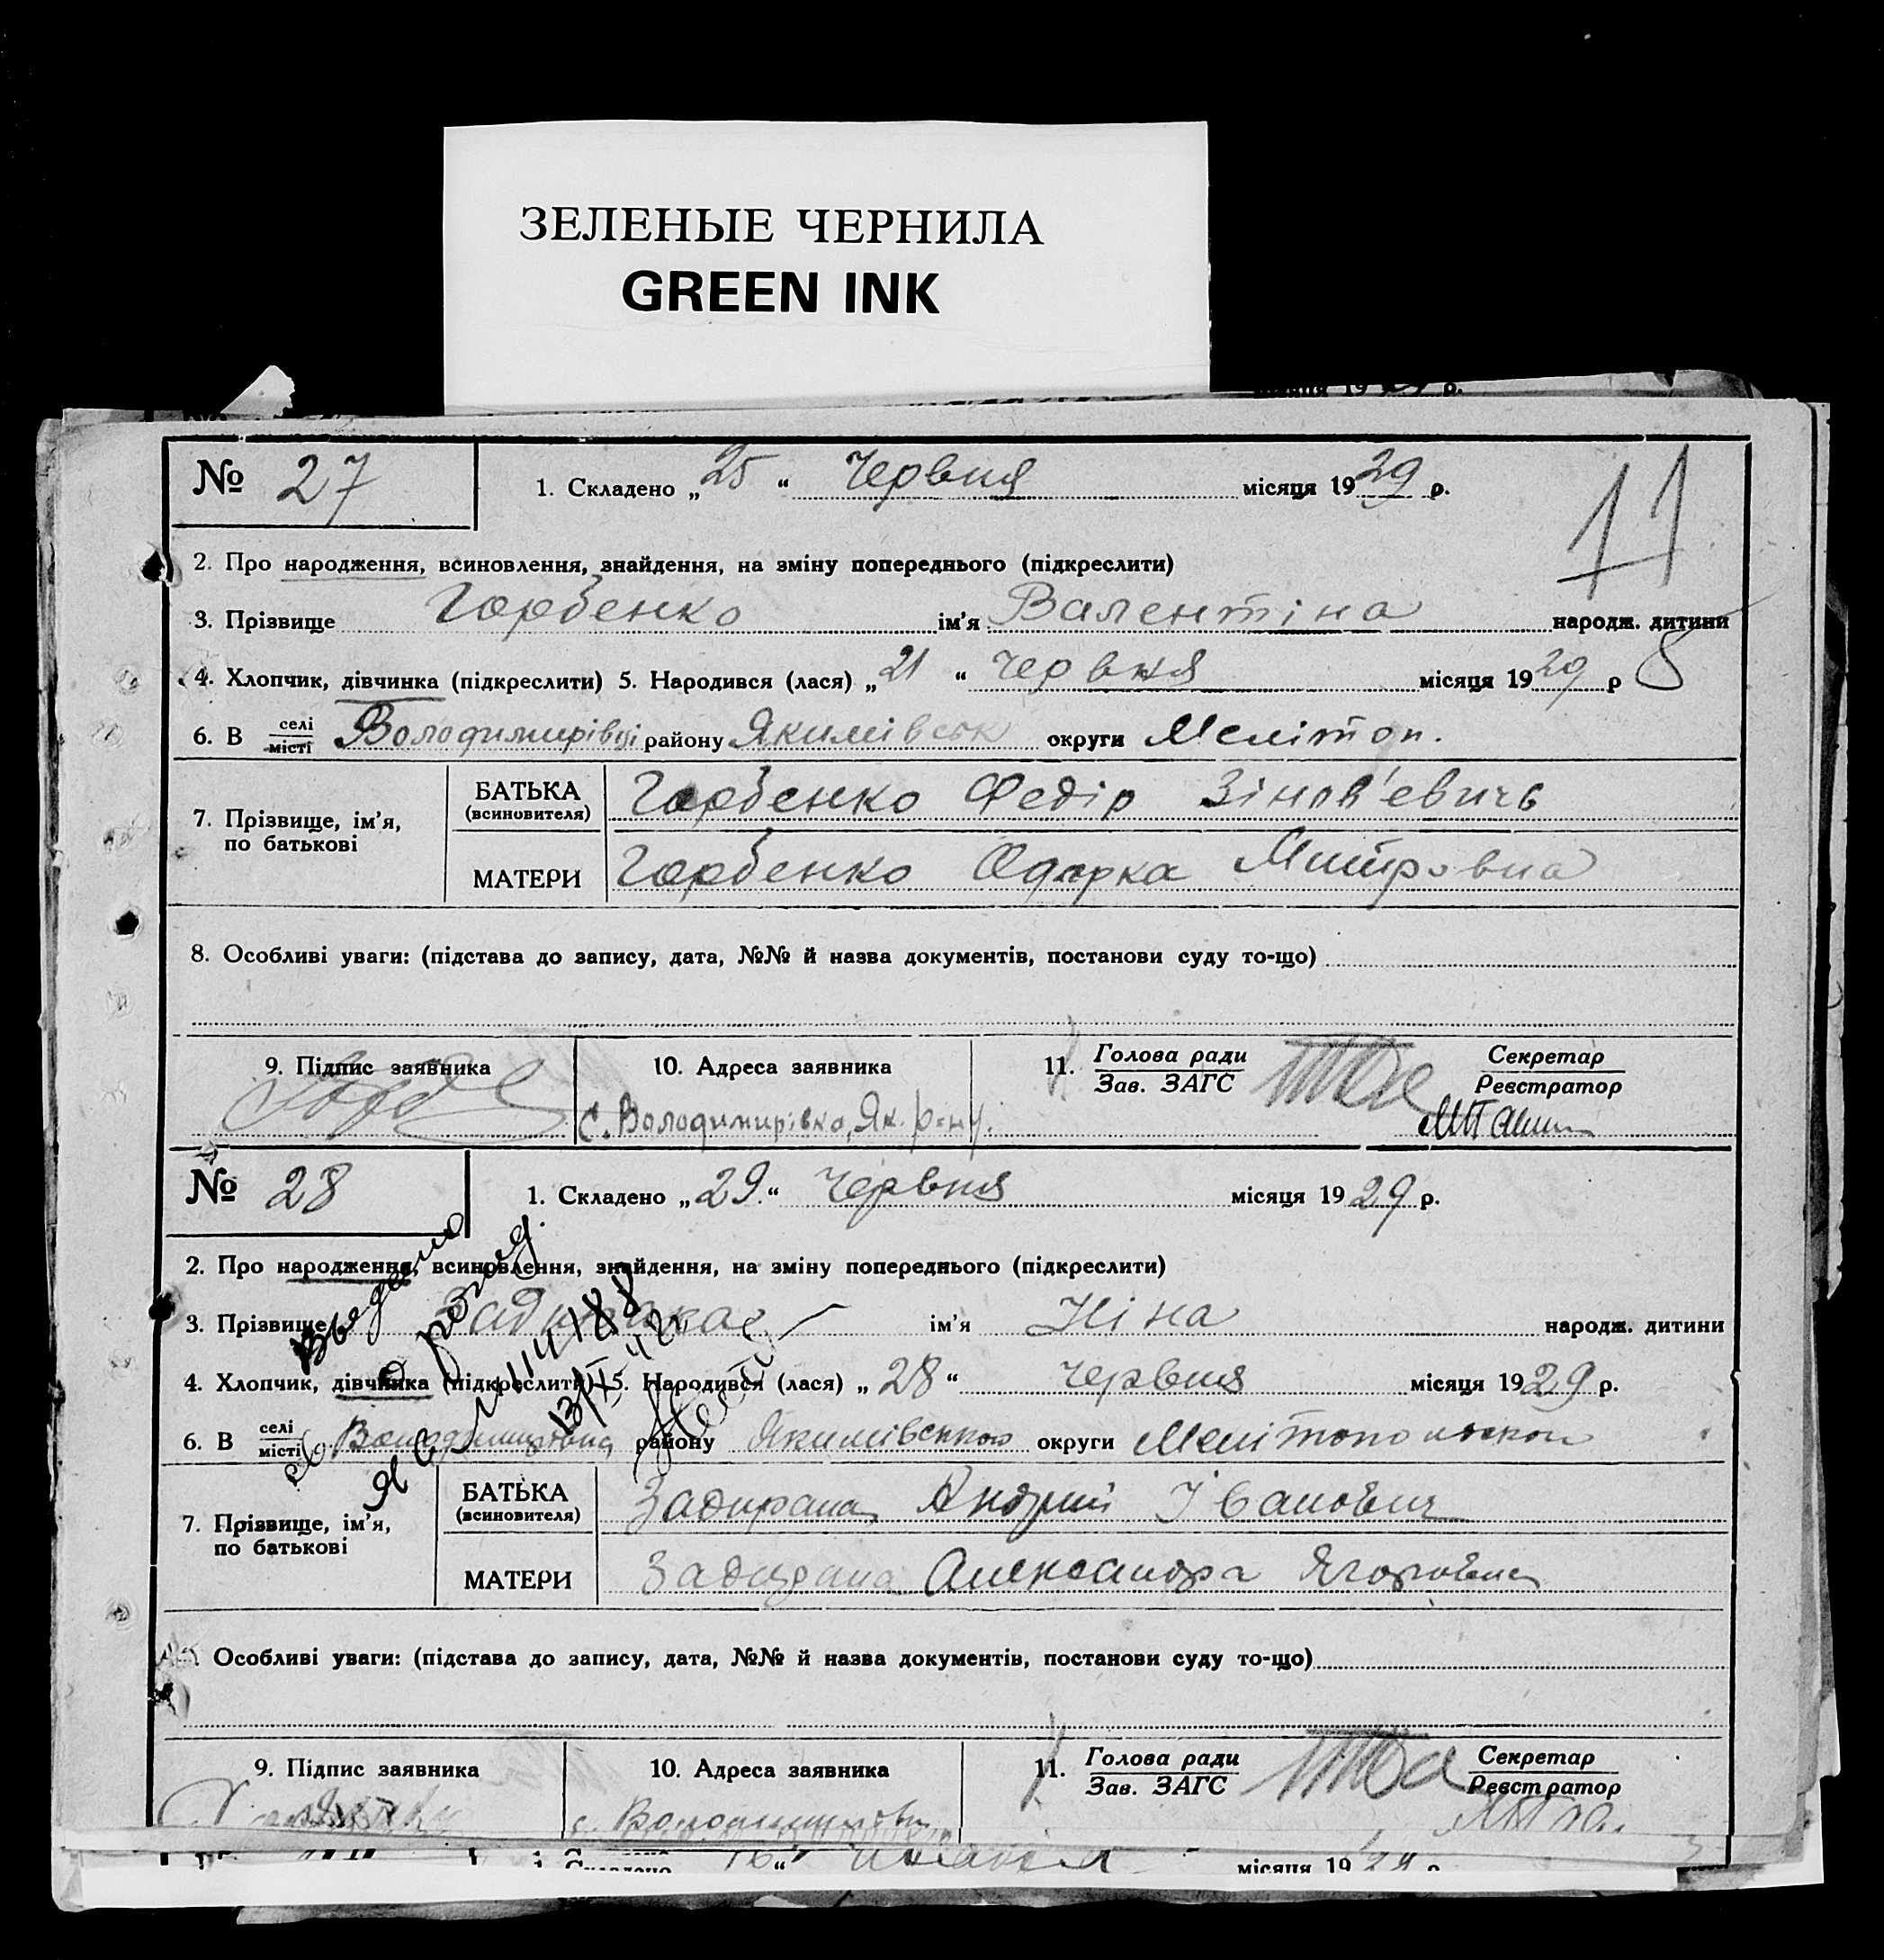 ЗЕЛЕНЫЕ ЧЕРНИЛА
GREEN INK
№ 27 1. Складено „25“ Червня місяця 1929 р.
11
2. Про народження, всиновлення, знайдення, на зміну попереднього (підкреслити)
3. Прізвище Горбенко ім'я Валентіна народж. дитини
4. Хлопчик, дівчинка (підкреслити) 5. Народився (лася) „21“ Червня місяця 1929 р
6. В селі/місті Володимирівці району Якимівськ округи Мелітоп.
7. Прізвище, ім'я, по батькові
БАТЬКА (всиновителя) Горбенко Федір Зінов'евичь
МАТЕРИ Горбенко Одарка Митровна
8. Особливі уваги: (підстава до запису, дата, №№ й назва документів, постанови суду то-що)
9. Підпис заявника 10. Адреса заявника 11. Голова ради Секретар
Зав. ЗАГС Реєстратор
с. Володимирівка, Як. р-ну.
№ 28 1. Складено „29.“ Червня місяця 1929 р.
2. Про народження, всиновлення, знайдення, на зміну попереднього (підкреслити)
3. Прізвище ім'я Ніна народж. дитини
4. Хлопчик, дівчинка (підкреслити) 5. Народився (лася) „28“ Червня місяця 1929 р.
6. В селі/місті району Якимівського округи
7. Прізвище, ім'я, по батькові
БАТЬКА (всиновителя) Андрий Іванович
МАТЕРИ Александра Ягоровна
Особливі уваги: (підстава до запису, дата, №№ й назва документів, постанови суду то-що)
9. Підпис заявника 10. Адреса заявника 11. Голова ради Секретар
Зав. ЗАГС Реєстратор
Складено 16 місяця 1929 р